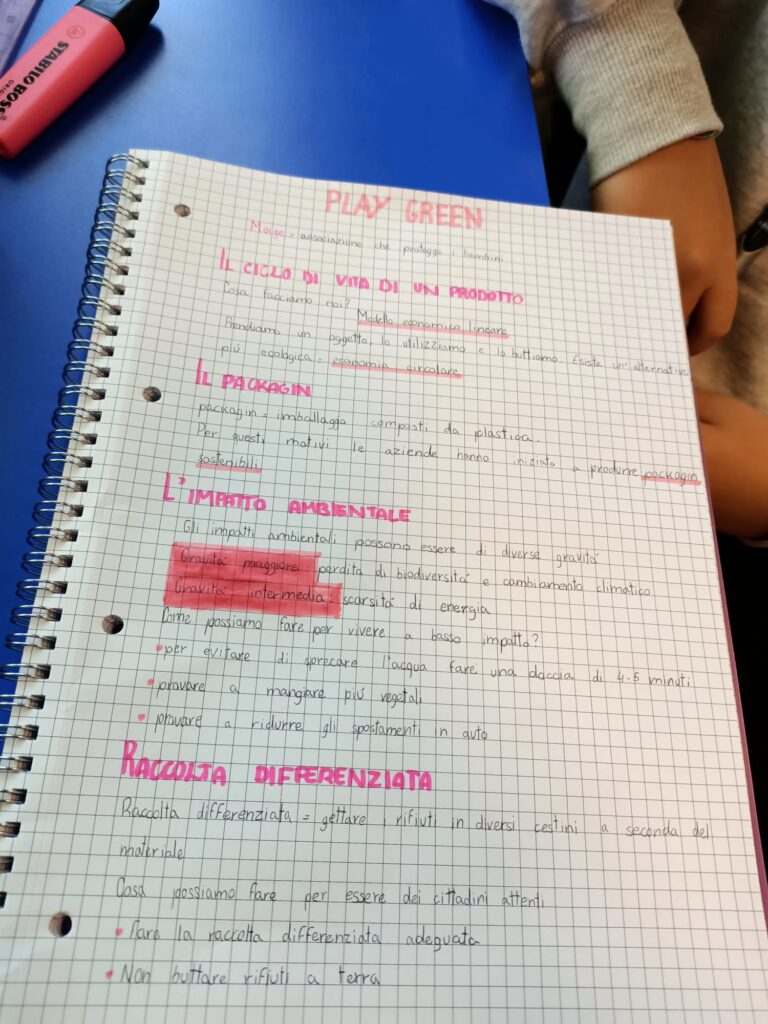 STABILO BOSS
ORIGI
PLAY GREEN
Moige = associazione che protegge i bambini
IL CICLO DI VITA DI UN PRODOTTO
Cosa facciamo noi? Modello economico lineare
Prendiamo un oggetto, lo utilizziamo e lo buttiamo. Esiste un'alternativa
più ecologica = economia circolare
IL PACKAGIN
packagin = imballaggi composti da plastica.
Per questi motivi le aziende hanno iniziato a produrre packagin
sostenibili
L'IMPATTO AMBIENTALE
Gli impatti ambientali possono essere di diverse gravità
Gravità maggiore: perdita di biodiversità e cambiamento climatico
Gravità intermedia: scarsità di energia
Come possiamo fare per vivere a basso impatto?
• per evitare di sprecare l'acqua fare una doccia di 4-5 minuti
• provare a mangiare più vegetali
• provare a ridurre gli spostamenti in auto
RACCOLTA DIFFERENZIATA
Raccolta differenziata = gettare i rifiuti in diversi cestini a seconda del
materiale
Cosa possiamo fare per essere dei cittadini attenti
• Fare la raccolta differenziata adeguata
• Non buttare rifiuti a terra